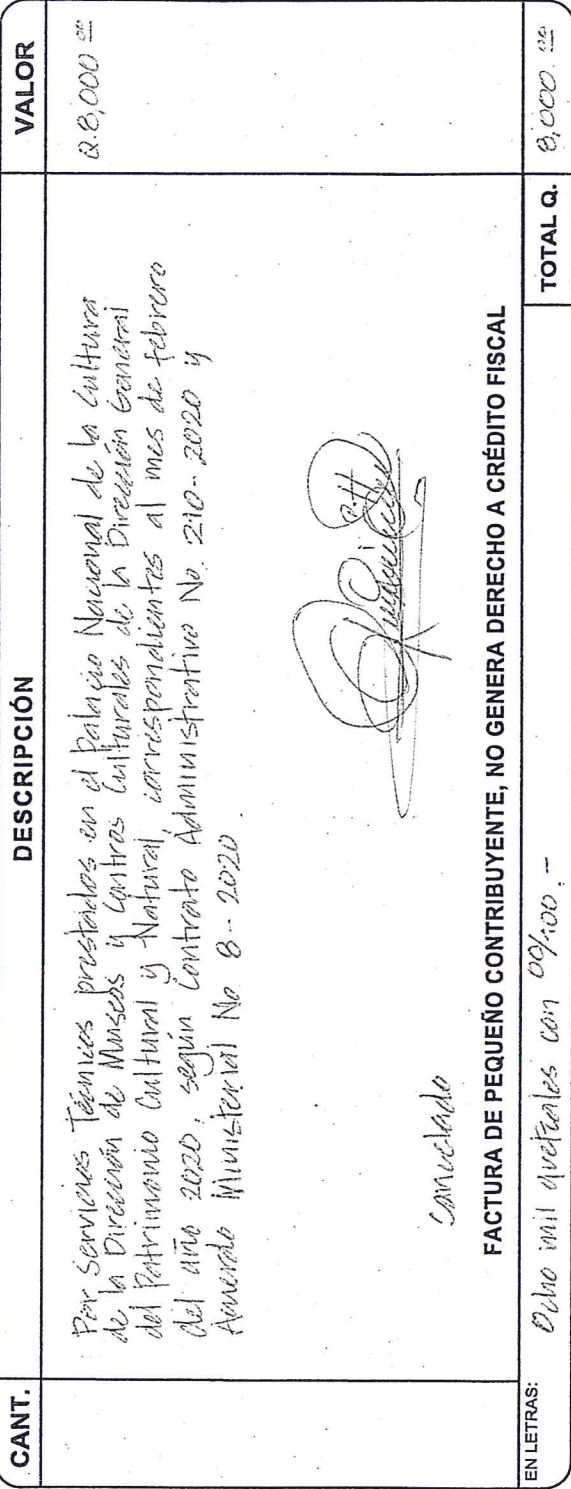 CANT. DESCRIPCIÓN VALOR
Por Servicios Técnicos prestados en el Palacio Nacional de la Cultura Q.8,000.00
de la Dirección de Museos y Centros Culturales de la Dirección General
del Patrimonio Cultural y Natural, correspondientes al mes de febrero
del año 2020, según Contrato Administrativo No. 210-2020 y
Acuerdo Ministerial No 8-2020.
Cancelado
FACTURA DE PEQUEÑO CONTRIBUYENTE, NO GENERA DERECHO A CRÉDITO FISCAL
EN LETRAS: Ocho mil quetzales con 00/100.- TOTAL Q. 8,000.00